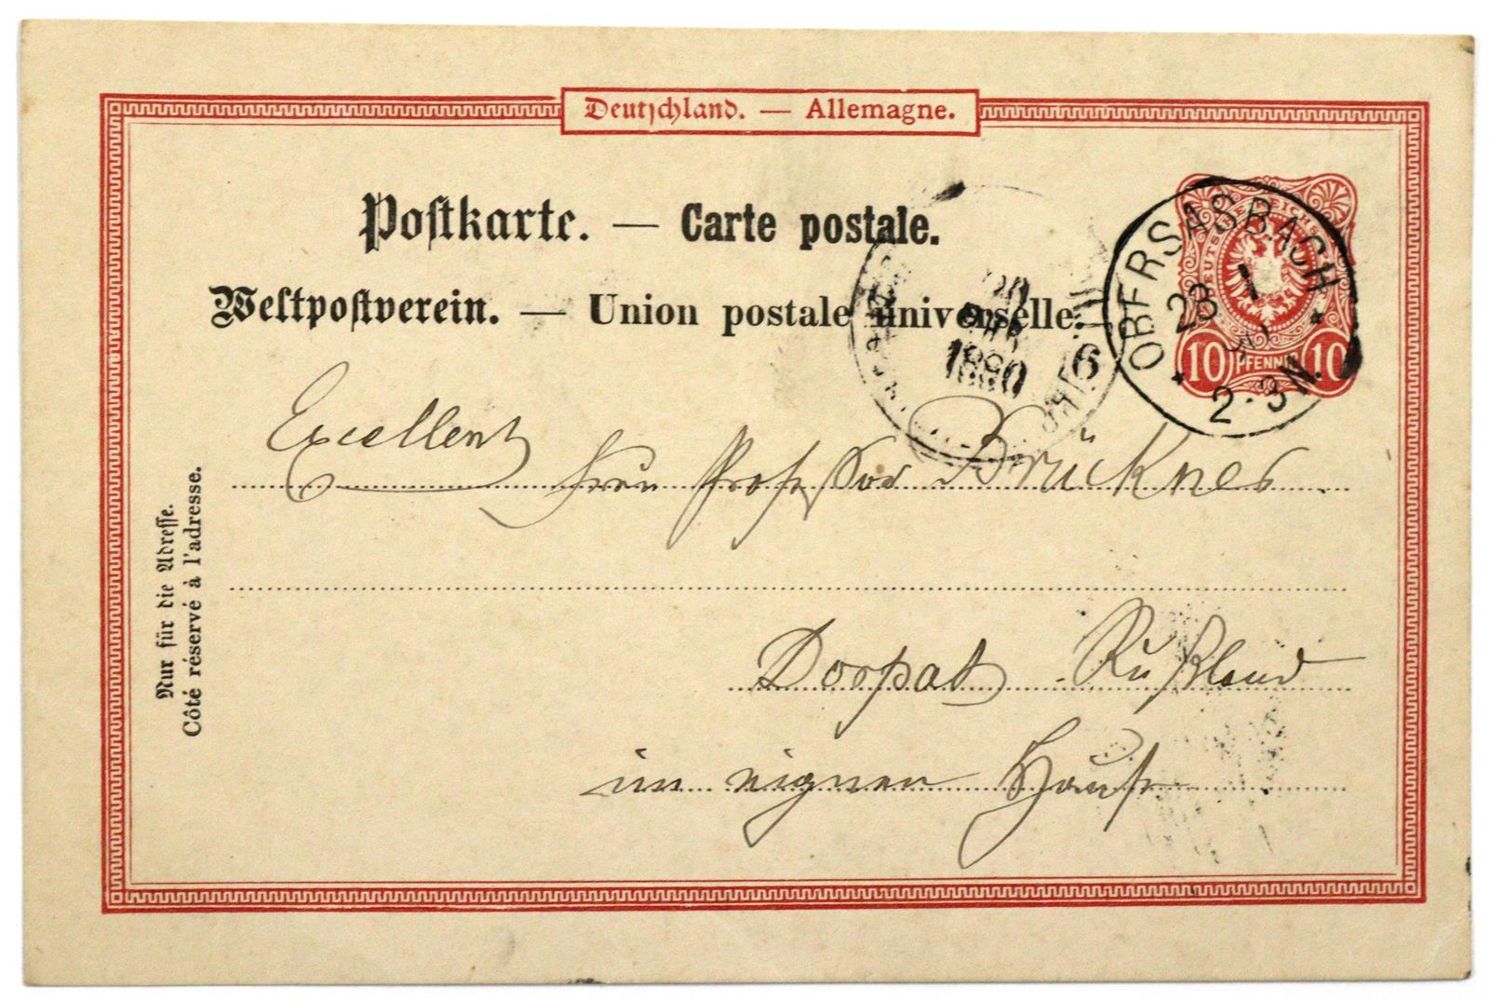 Deutschland. — Allemagne.
Postkarte. — Carte postale.
Weltpostverein. — Union postale universelle.
OBERSASBACH
23 1
2-3N.
DEUTSCHE REICHSPOST
10 PFENNIG 10
1890
6
Excellenz Herrn Professor Brückner
Dorpat Rußland
im eignen Hause
Nur für die Adresse.
Côté réservé à l'adresse.